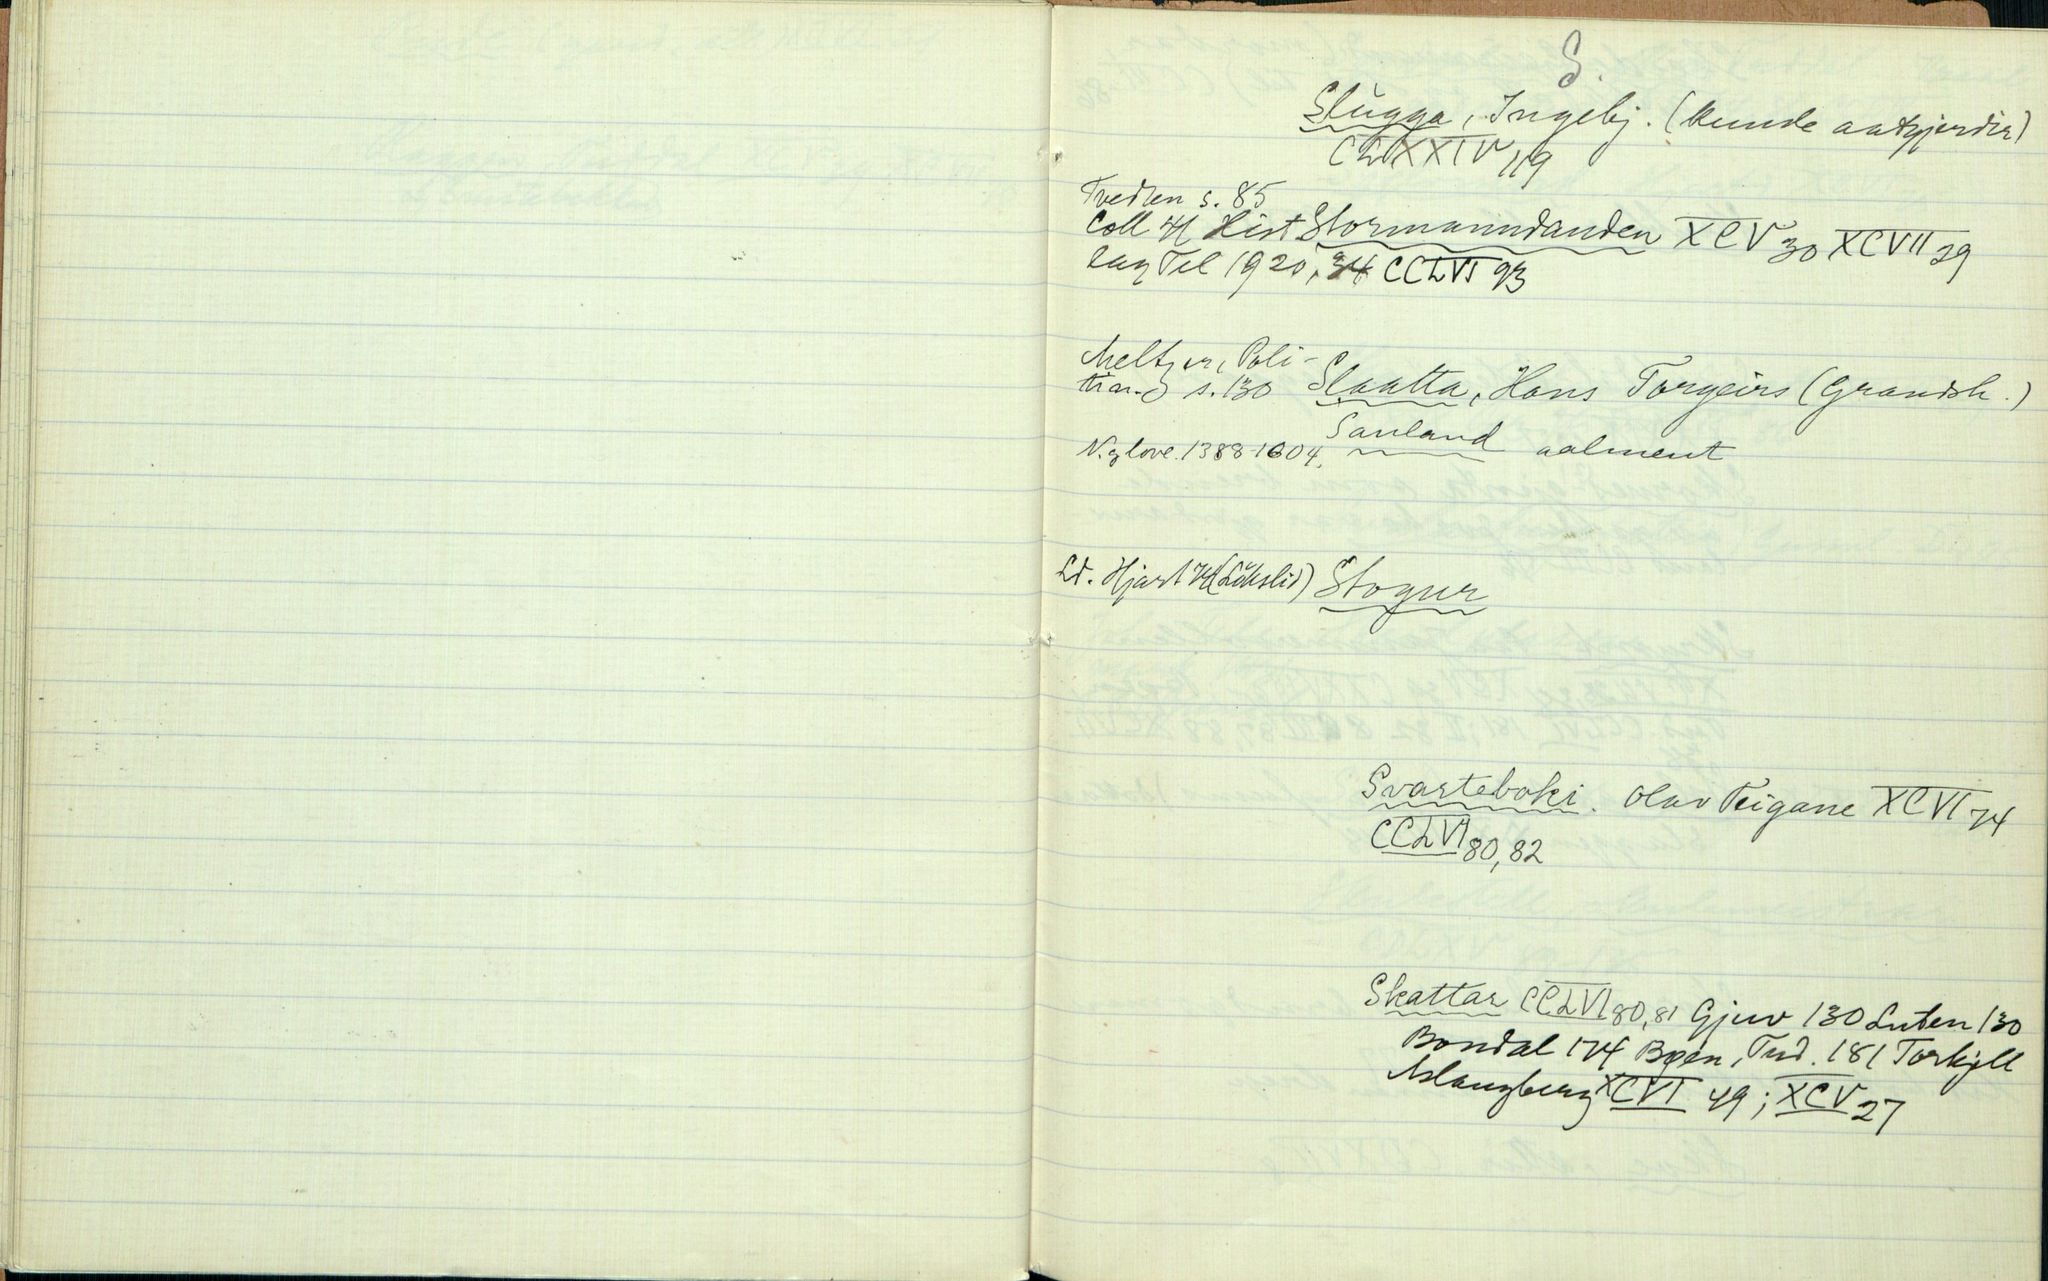 S.
Slugga, Ingebj. (kunde aatgjerdir)
CLXXIV 119
Tvedten s. 85
Coll 4/ Hist Stormanndauden XCV 30 XCVII 29
lag Tel 1920, 34 CCLVI 93
Meltzer, Poli-
s. 130 Slaatta, Hans Torgeirs (Gransh.)
Sauland aalment
N.g love. 1388-1604.
Ld. Hjart (Lǔkslid) Stogur
Svarteboki. Olav Teigane XCVI 74
CCLVI 80, 82
Skattar CCLVI 80, 81 Gjuv 130 Luten 130
Bondal 174 Bøen, Tud. 181 Torkjell
Aslaugberg XCVI 49; XCV 27